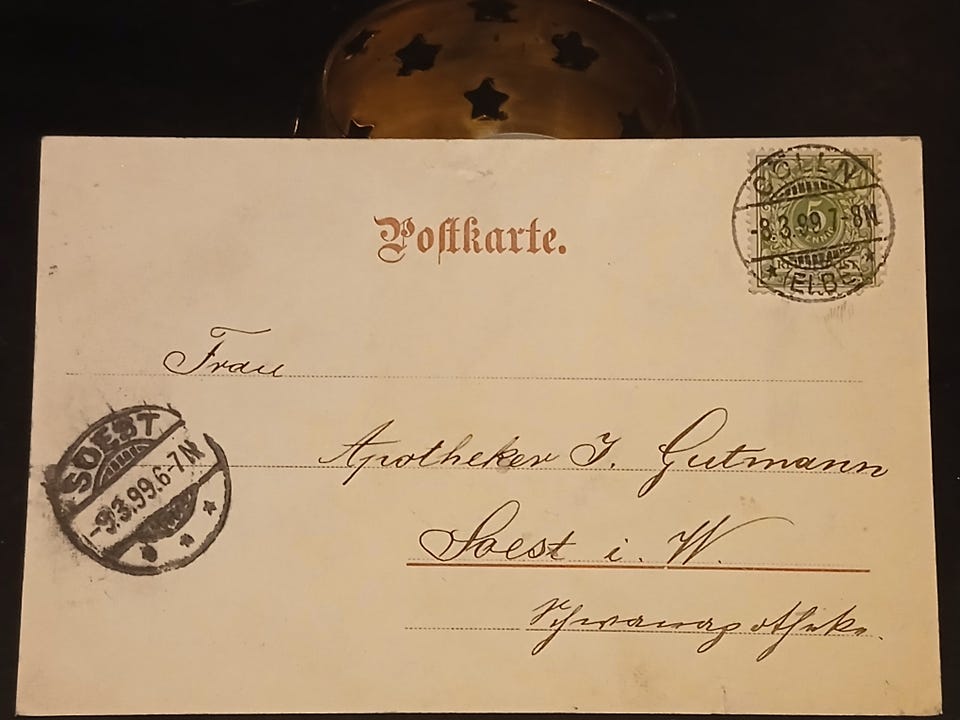 Postkarte.
CÖLLN
5
-8.3.99.7-8N
* (ELBE) *
Frau
Apotheker J. Gutmann
SOEST
-9.3.99.6-7N
Soest i. W.
Schwanapotheke.